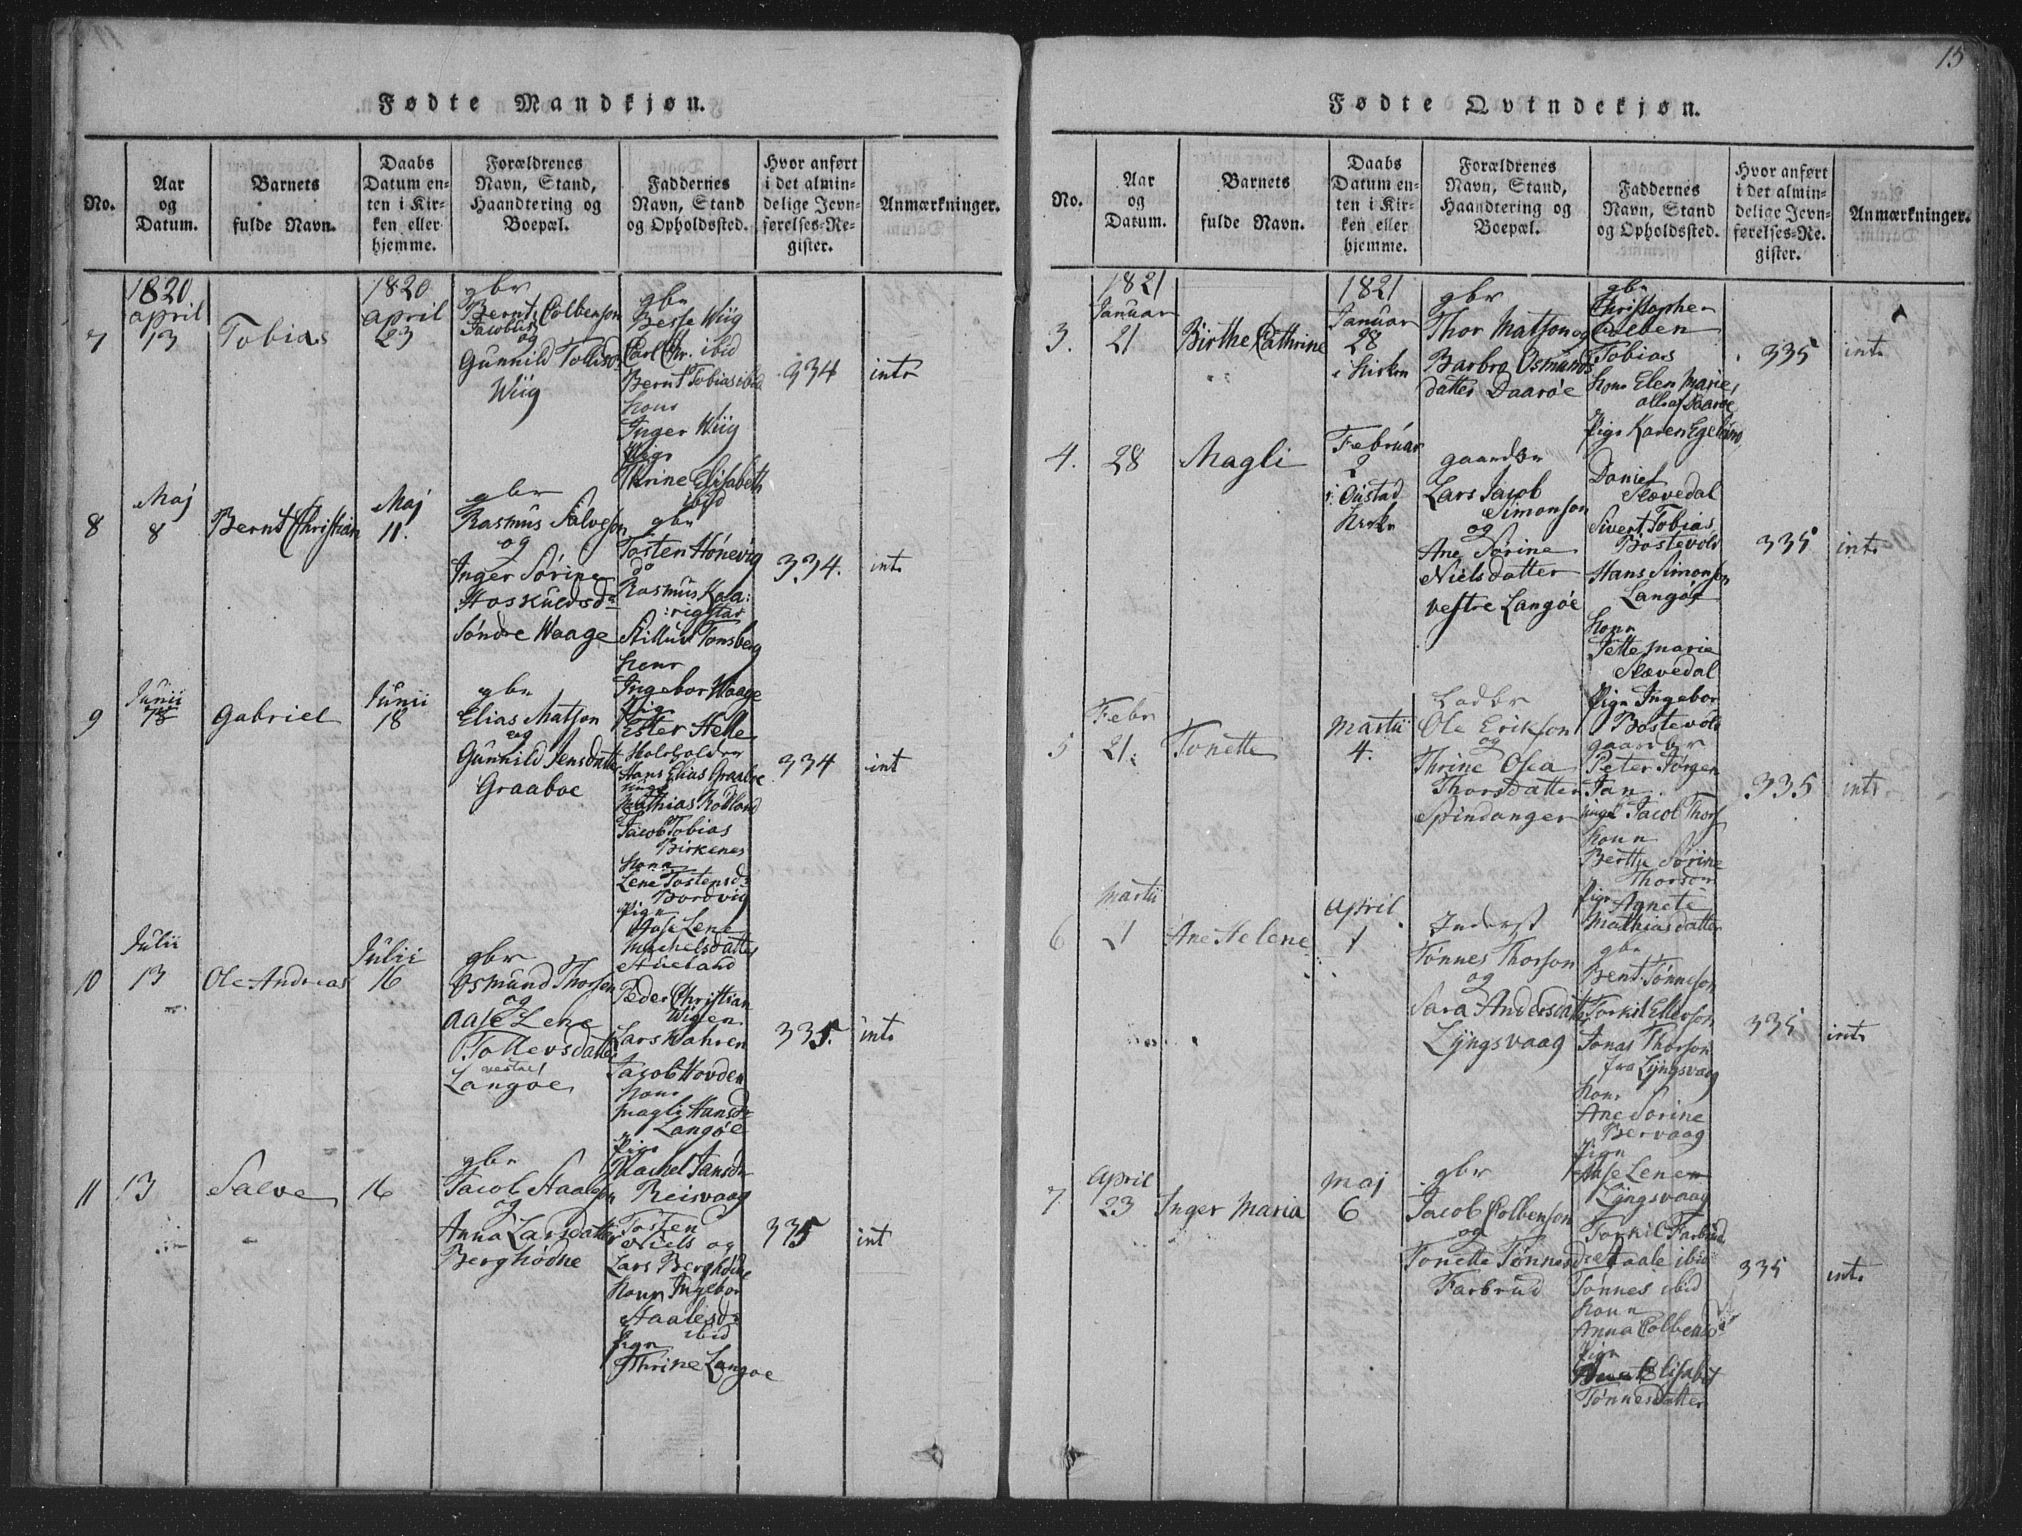 Fødte Mandkjøn.
No.
Aar
og
Datum.
Barnets
fulde Navn.
Daabs
Datum en-
ten i Kir-
ken eller
hjemme.
Forældrenes
Navn, Stand,
Haandtering og
Boepæl.
Faddernes
Navn, Stand
og Opholdssted.
Hvor anført
i det almin-
delige Jevn-
førelses-Re-
gister.
Anmærkninger.
7
1820
april
13
Tobias
1820
april
23
gbr
Bernt Colbenson
Jacobus
og
Gunnild Tollisd
Wiig
gbr
Besse Wiig
Carl Chr. ibid
Bernt Tobias ibid
Kone
Inger Wiig
Pige
Thrine Elisabeth
ibid
934
int
8
Maj
8
Bernt Christian
Maj
11.
gbr
Rasmus Salveson
og
Inger Sørine
Hoskuldsdr
Søndre Waage
gbr
Tosten Hønevig
do
Rasmus Kala:
:rigstad
Tønsberg
Kone
Ingebor Waage
Pige
Ester Helle
334.
int
9
Junii
18
Gabriel
Junii
18
gbr
Elias Matson
og
Gunnild Jensdatter
Graaboe
Hans Elias Graaboe
Mathias Rødland
Jacob Tobias
Birkenes
Kone
Lene Tostensdr
Bordvig
Pign
Aase Lene
Michelsdatter
Stueland
334
int
10
Julii
13
Ole Andreas
Julii
16
gbr
Osmund Thorsen
og
Aase Lene
Tollevsdatter
vestre
Langøe
Peder Christian
Wigen
Lars Wahren
Jacob Hovden
Kone
Magli Hansdr
Langøe
Pige
Rachel Jansdr
Reisvaag
335.
int
11
13
Salve
16
gbr
Jacob Staaleson
og
Anna Larsdatter
Berghødne
Tosten
Niels og
Lars Berghødne
Kone Ingebor
Staalesdr
ibid
Pign
Thrine Langøe
335
int
15
Fødte Qvindekjøn.
No.
Aar
og
Datum.
Barnets
fulde Navn.
Daabs
Datum en-
ten i Kir-
ken eller
hjemme.
Forældrenes
Navn, Stand,
Haandtering og
Boepæl.
Faddernes
Navn, Stand
og Opholdssted.
Hvor anført
i det almin-
delige Jevn-
førelses-Re-
gister.
Anmærkninger.
3.
1821
Januar
21
Birthe Cathrine
1821
Januar
28
i Kirken
gbr
Thor Matson og
Barbro Osmunds
datter Daarøe
gbr
Christopher
Colben
Tobias
Kone Elen Marie
alle af Daarøe
Pige Karen Egelund
335
int
4.
28
Magli
Februar
2
i Oustad
Kirke
gaardbr
Lars Jacob
Simonson
og
Ane Sørine
Nielsdatter
vestre Langøe
Daniel
Slævedal
Sivert Tobias
Bostevold
Hans Simonson
Langøe
Kone
Jette Marie
Slævedal
Pign Ingebor
Bostevold
335
int
5
Febr
21.
Tonette
Martii
4.
Ladbr
Ole Erikson
og
Thrine Olea
Thorsdatter
Spindanger
gaardbr
Peter Jørgen
Jan
ungk Jacob Thors
Koun
Berthe Sørine
Thorsdr
Pige Agnete
Mathiasdatter
335
int
6
Martii
21
Ane Helene
April
1
Inderst
Tønnes Thorson
og
Sara Andersdatter
Lyngsvaag
gbr
Bent Tønneson
Torkil Ellerson
Jonas Thorson
fra Lyngsvaag
Kone
Ane Sørine
Bervaag
Pign
Aase Lene
Lyngsvaag
335
int
7
April
23
Inger Maria
Maj
6
gbr
Jacob Colbenson
og
Tonette Tønnesdr
Farbrud
Torkil Farbrud
Staale ibid
Tønnes ibid
Koun
Anna Colbensdr
Pign
Elisabet
Tønnesdatter
335
int